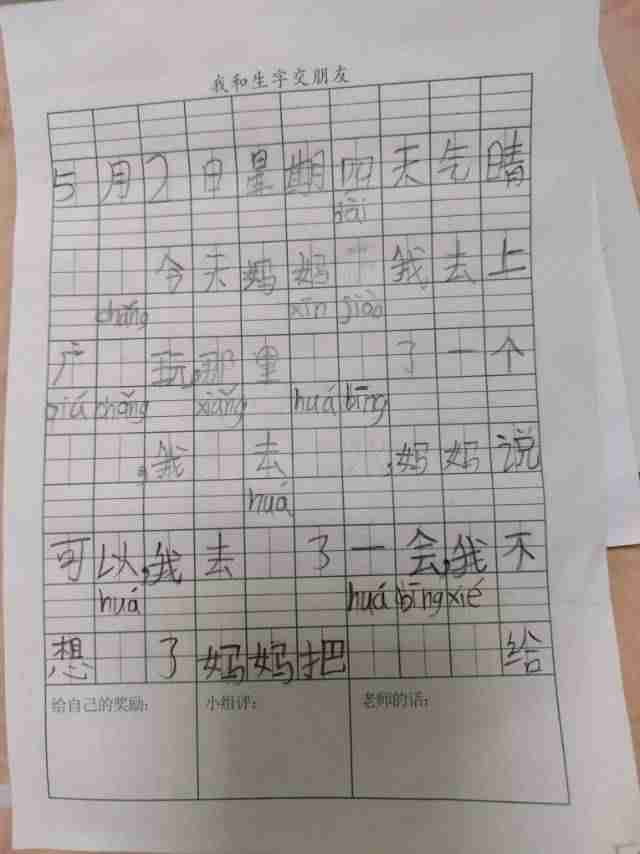 我和生字交朋友
5月2日星期四天气晴
dài
今天妈妈 我去上
chǎng xīn jiào
广 玩,那里 了一个
chǎng xiǎng huá bīng
,我 去 ,妈妈说
huá
可以,我去 了一会,我不
huá huá bīng xié
想 了妈妈把 给
给自己的奖励: 小组评: 老师的话: